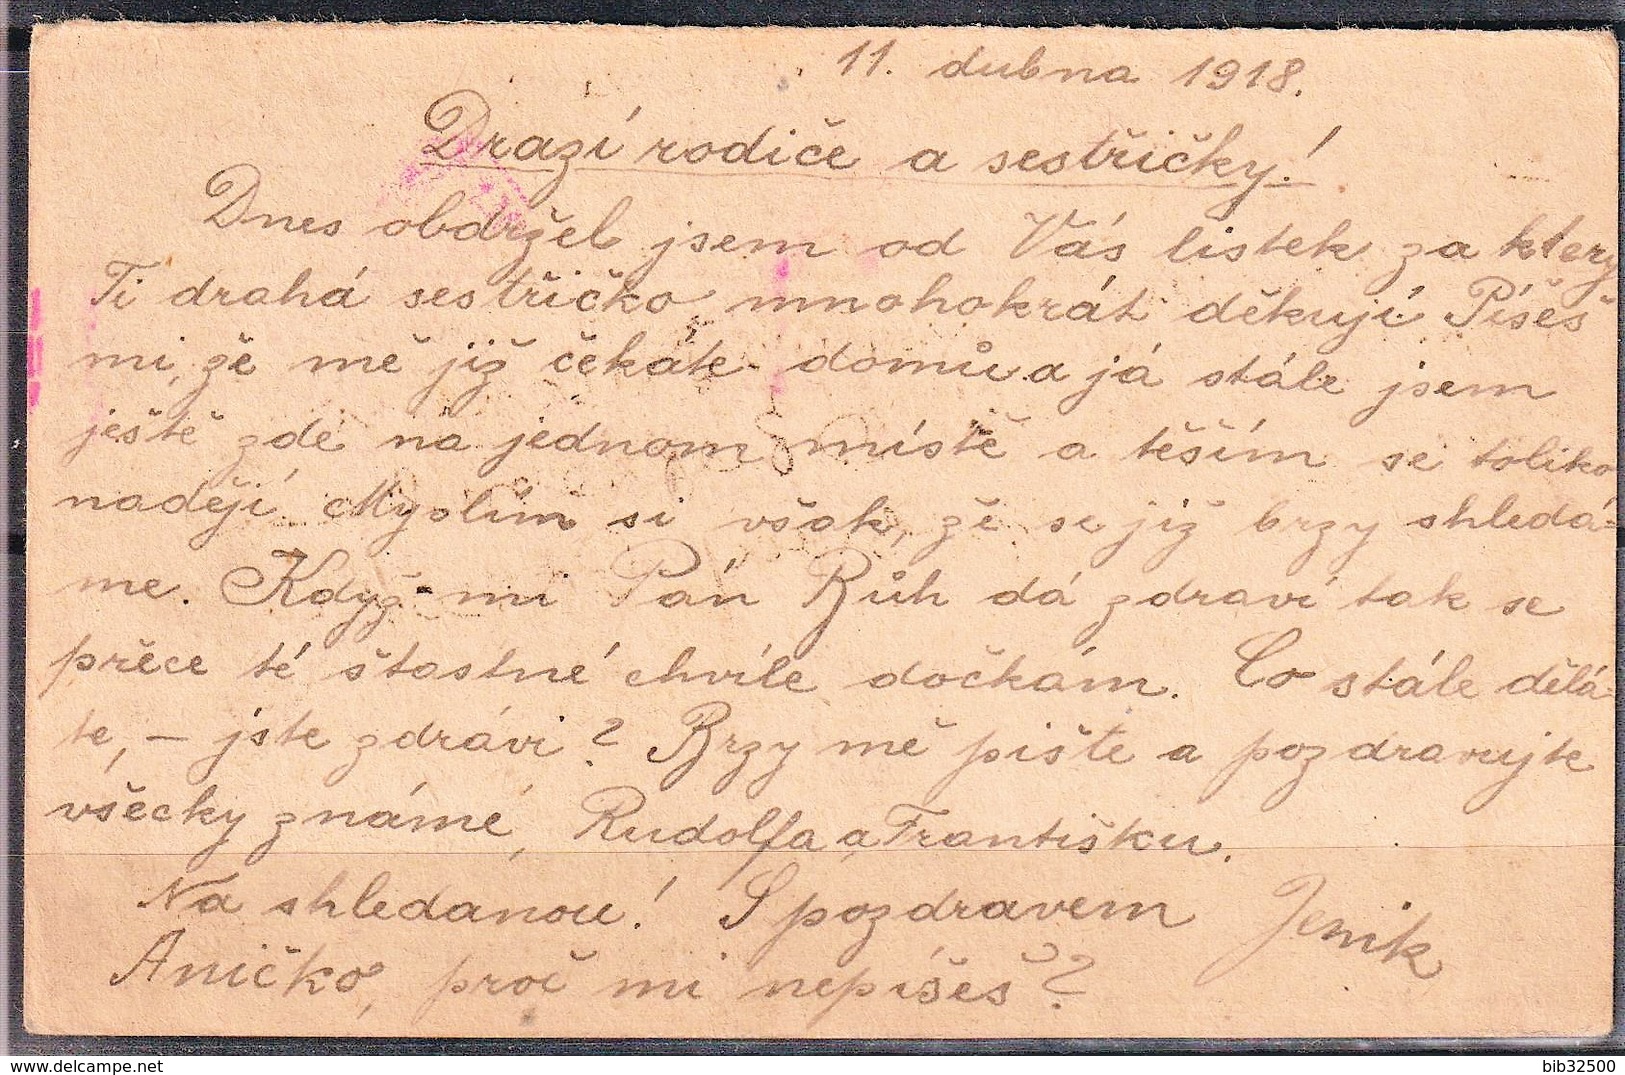 11. dubna 1918.
Drazí rodiče a sestřičky!
Dnes obdržel jsem od Vás lístek za který
Ti drahá sestřičko mnohokrát děkuji. Píšeš
mi, že mě již čekáte domů a já stále jsem
ještě zde na jednom místě a těším se toliko
nadějí. Myslím si však, že se již brzy shledá-
me. Když mi Pán Bůh dá zdraví tak se
přece té štastné chvíle dočkám. Co stále dělá-
te, – jste zdrávi? Brzy mě pište a pozdravujte
všecky známé, Rudolfa a Františku.
Na shledanou! S pozdravem Jeník
Aničko, proč mi nepíšeš?
www.delcampe.net
bib32500